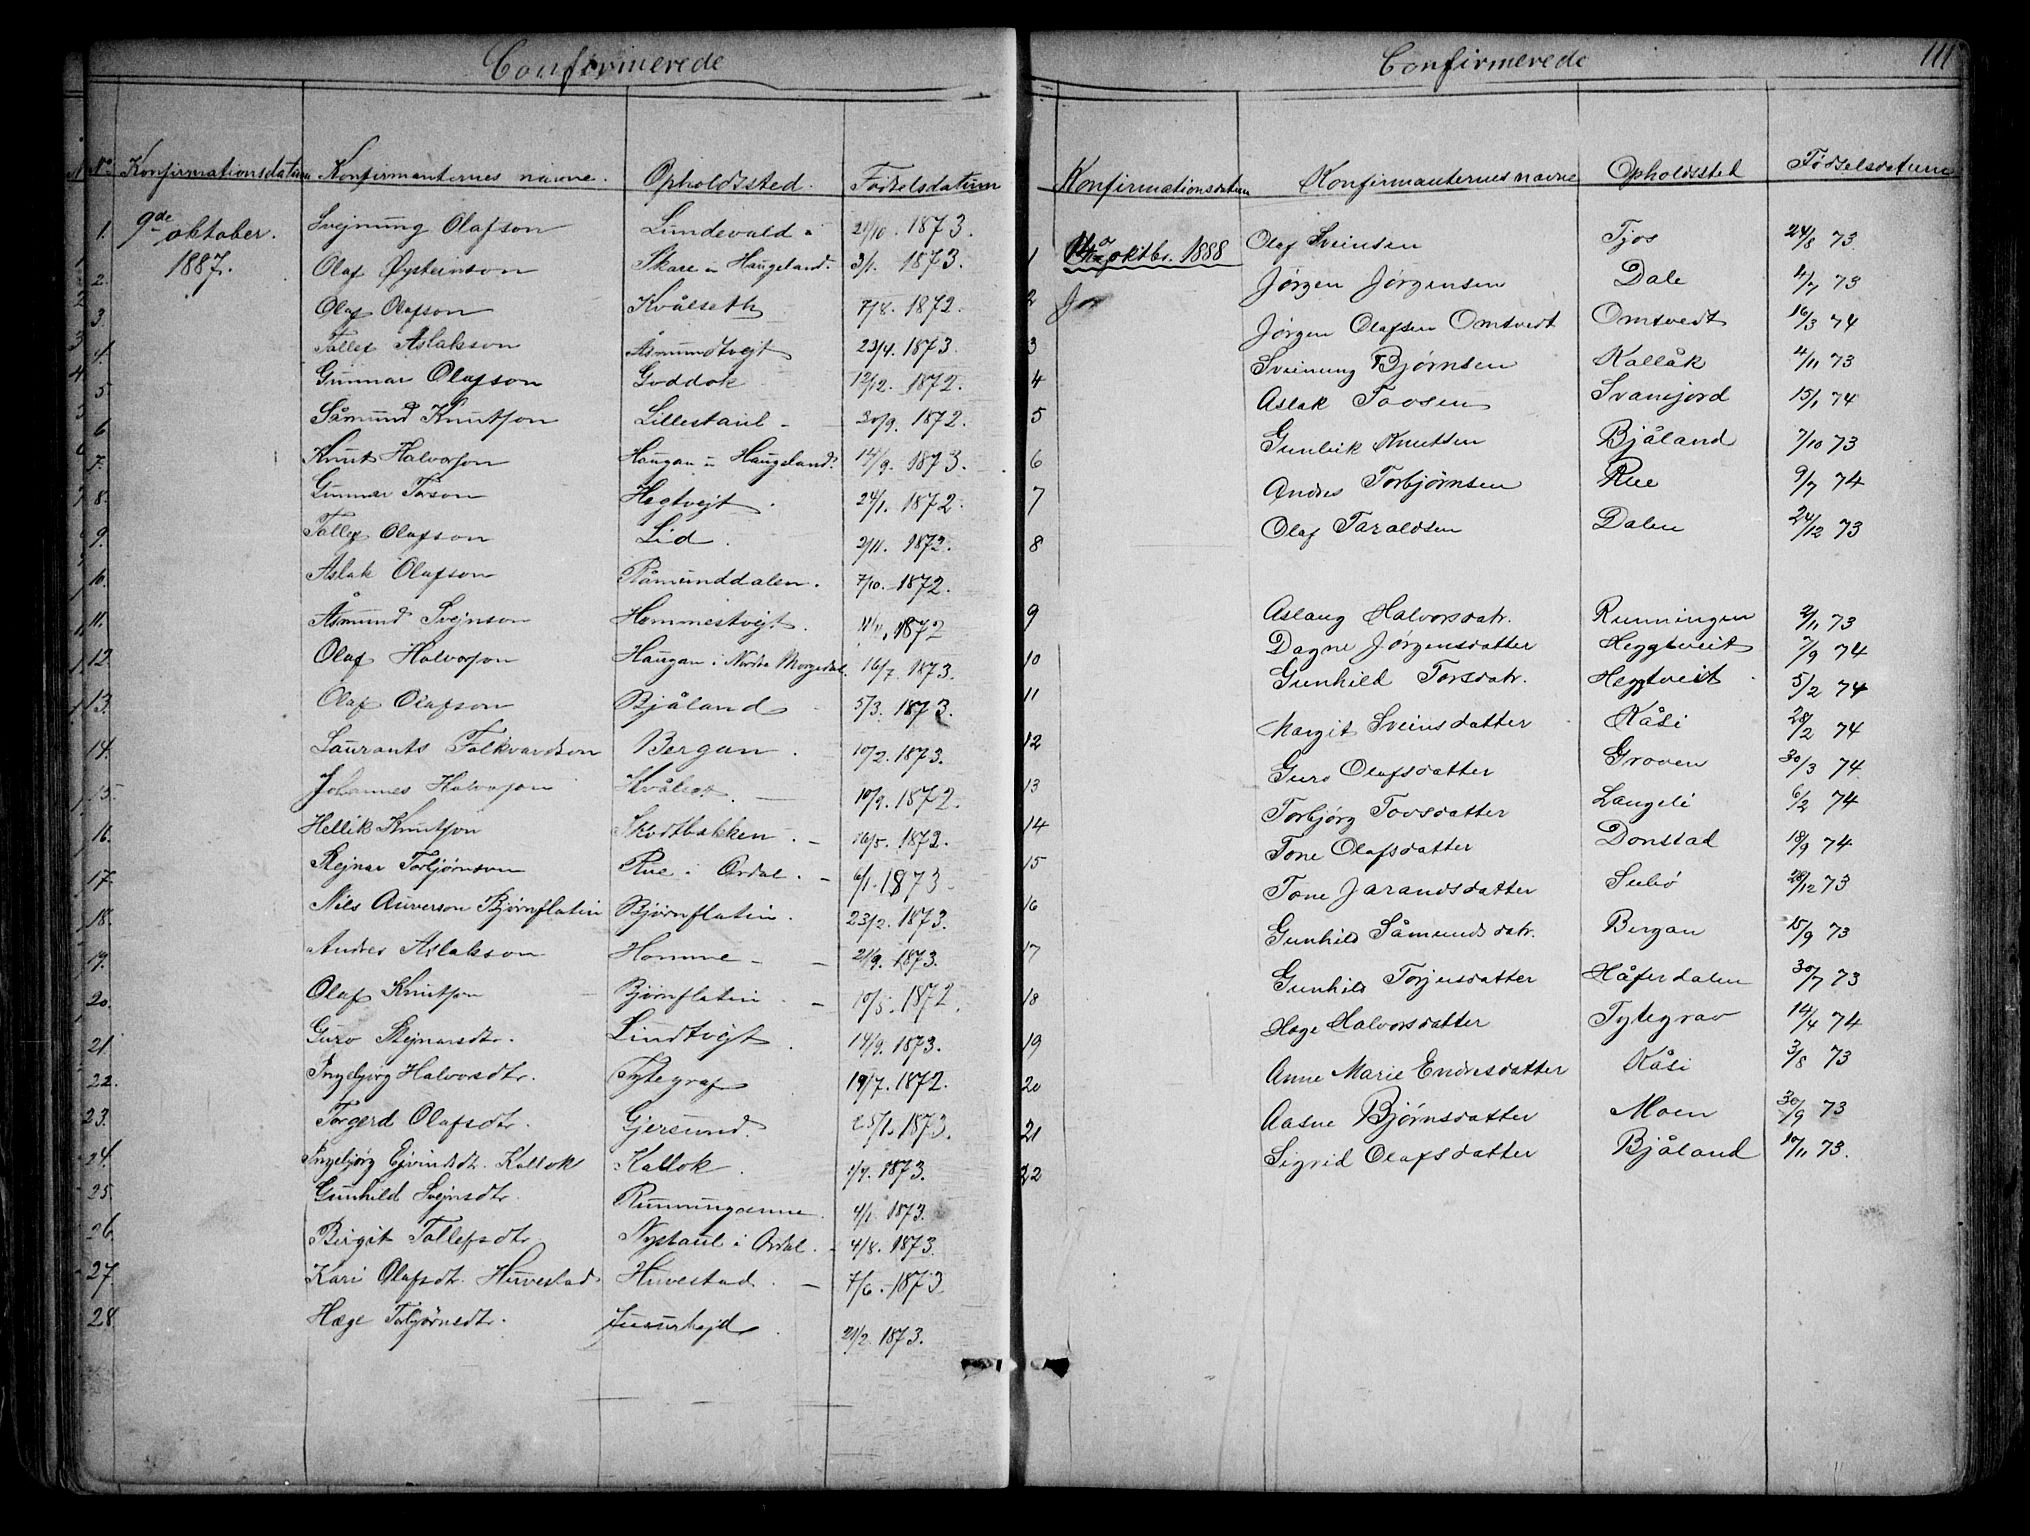 Confirmerede
No. Konfirmationsdatum Konfirmanternes navne. Opholdssted. Fødselsdatum
1. 9de oktober. Svejnung Olafson Lundevald 21/10. 1873.
1887.
2. Olaf Øysteinson Skare i Haugeland. 3/1. 1873.
3. Olaf Olafson Kvålseth 7/8. 1872.
4. Tallef Aslakson Åsmundtvejt 23/4. 1873.
5 Gunnar Olafson Goddok 12/12. 1872.
6 Såmund Knutson Lillestaul 30/9. 1872.
7. Knut Halvorson Haugan i Haugeland. 14/9. 1873.
8. Gunnar Torson Hegtvejt. 24/1. 1872.
9. Tallef Olafson Lid. 2/11. 1872.
10. Aslak Olafson Råmunddalen. 7/10. 1872.
11. Åsmund Svejnson Hommestvejt. 1872
12. Olaf Halvorson Haugan i Nordre Morgedal. 16/7. 1873.
13. Olaf Olafson Bjåland 5/3. 1873.
14. Laurants Folkvardson Bergan. 10/2. 1873.
15. Johannes Halvorson 10/9. 1872.
16. Hellik Knutson Skodtbakken. 16/5. 1872.
17. Stejnar Torbjørnson Rue i Ordal. 6/1. 1873.
18. Nils Auverson Bjørnflatin Bjørnflatin. 23/2. 1873.
19. Andres Aslakson Homme 21/9. 1873.
20. Olaf Knutson Bjørnflatin 10/5. 1872.
21 Guro Stejnarsdtr. Lindtvejt 14/9. 1873.
22. Ingebjørg Halvorsdtr. Tytegraf 19/7. 1872.
23. Torgerd Olafsdtr. Gjersund. 25/1. 1873.
24. Ingebjørg Ejvindsdt. Kallok Kallok. 1/7. 1873.
25. Gunhild Svejnsdtr. Runningamne. 4/1. 1873.
26. Birgit Tallefsdtr. Nystaul i Ordal. 4/8. 1873.
27. Kari Olafsdt. Huvestad Huvestad. 7/6. 1873.
28. Hæge Torbjørnsdtr. 21/2. 1873.
Confirmerede 111
Konfirmationsdatum Konfirmanternes navne Opholdssted Fødselsdatum
1 14de oktbr. 1888 Olaf Sveinsen Tjos 24/8 73.
2 Jør Jørgen Jørgensen Dale 4/7 73
3 Jørgen Olafsen Omtvedt Omtvedt 16/3 74
4 Sveinung Bjørnsen Kallåk 4/11 73
5 Aslak Tovsen Svanejord 15/1 74
6 Gunleik Knutsen Bjåland 7/10 73
7 Andres Torbjørnsen Rue 9/7 74
8 Olaf Taraldsen Dalen 24/12 73
9 Aslaug Halvorsdatr. Runningen 2/11 73
10 Dagne Jørgensdatter Heggtveit 7/9 74
11 Gunhild Torsdatr. Heggtveit 5/2 74
12 Margit Sveinsdatter Kåsi 28/2 74
13 Guro Olafsdatter Groven 30/3 74
14 Torbjørg Tovsdatter Langeli 6/2 74
15 Tone Olafsdatter Donstad 18/9 74
16 Tone Jarandsdatter Subø 28/12 73
17 Gunhild Såmundsdatr. Bergan 15/9 73
18 Gunhild Torjusdatter Håferdalen 30/7 73
19 Hæge Halvorsdatter Tytegrav 14/4 74
20 Anne Marie Endresdatter Kåsi 3/8 73
21 Aasne Bjørnsdatter Moen 30/9 73
22 Sigrid Olafsdatter Bjåland 10/11 73.